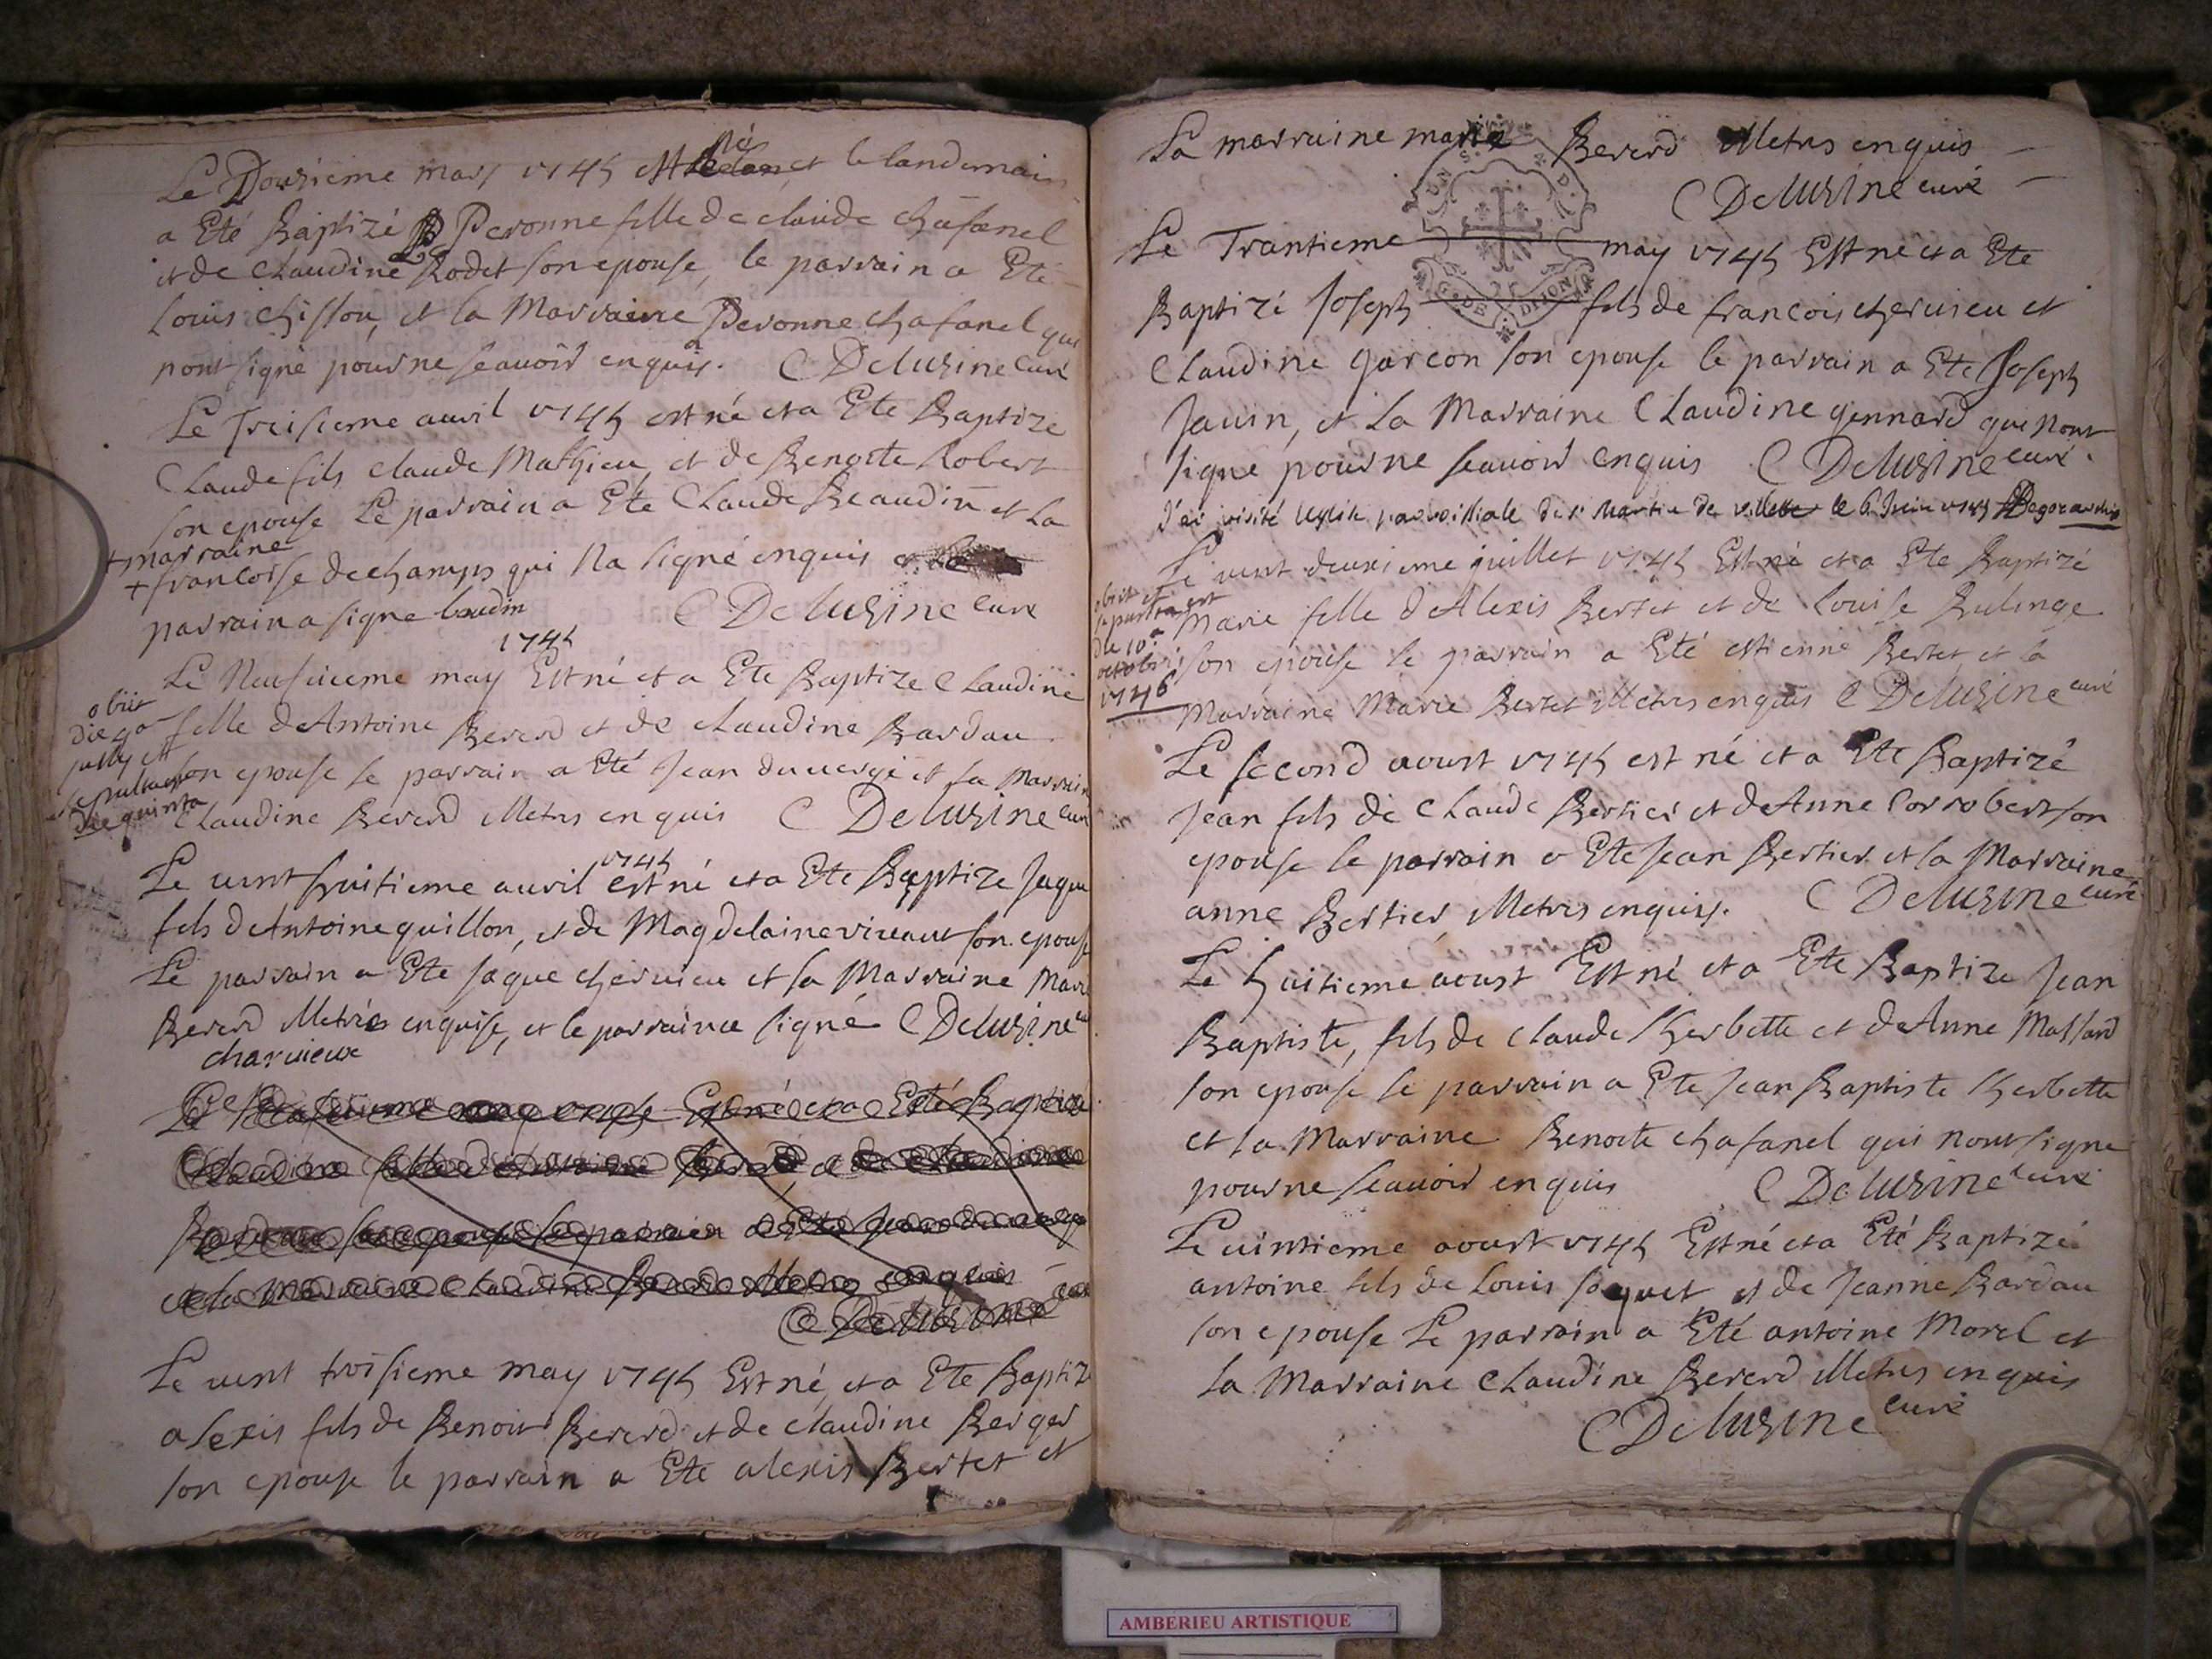 Le Douzieme mars 1745 est né et le landemain
a Eté Baptizé Peronne fille de claude chafanel
et de Claudine Rodet son epouse, le parrain a Eté
Louis chisson, et la Marraine Peronne chafanel qui
nont signé pour ne scauoir enquis. C Deluzine curé
Le Treisieme auril 1745 est né et a Ete Baptize
Claude fils claude Mathieu, et de Benoite Robert
son epouse Le parrain a Ete Claude Beaudin et La
+ marraine
+ francoise dechamps qui Na signé enquis
parrain a signe baudin C Deluzine curé
1745
Le Neufuieme may Est né et a Ete Baptize Claudine
fille d'Antoine Bererd et de claudine Bardau
son epouse le parrain a Eté Jean duuergé et la Marraine
Claudine Bererd Metris enquis C Deluzine curé
obiit
die 4o
july et
sepulta
die quinta
1745
Le uint huitieme auril est né et a Ete Baptize Jaque
fils d'Antoine quillon, et de Magdelaine viueaut son epouse
Le parrain a Ete Jaque cheruieu et la Marraine Marie
Bererd Metris enquise, et le parrain a signé C Deluzine
charuieux
Le uint troisieme may 1745 Est né, et a Ete Baptizé
alexis fils de Benoit Bererd et de claudine Berger
son epouse le parrain a Ete alexis Bertet et
La marraine marie Bererd Metris enquis
C Deluzine curé
Le Trantieme may 1745 Est né et a Ete
Baptizé Joseph fils de francois cheruieu et
Claudine garcon son epouse le parrain a Ete Joseph
Jauin, et La Marraine Claudine gennard qui nont
signe pour ne scauoir enquis C Deluzine curé.
J'ai visité leglise parroissiale de st Martin de villette le 6 Juin 1745
Le uint deuxieme juillet 1745 Est né et a Ete Baptizé
Marie fille d'Alexis Bertet et de Louise Bulinge
son epouse le parrain a Eté estienne Bertet et la
Marraine Marie Bertet Metris enquis C Deluzine curé
obiit et
sepulta est
die 10a
octobris
1746
Le second aoust 1745 est né et a Ete Baptizé
Jean fils de Claude Bertier et d'Anne Corrobert son
epouse le parrain a Ete Jean Bertier et la Marraine
anne Bertier, Metris enquis. C Deluzine curé
Le huitieme aoust Est né et a Ete Baptize Jean
Baptiste, fils de claude Kerbette et d'Anne Massard
son epouse le parrain a Ete Jean Baptiste Kerbette
et la Marraine Benoite chafanel qui nont signe
pour ne scauoir enquis C Deluzine curé
Le uintieme aoust 1745 Est né et a Eté Baptizé
antoine fils de Louis Joquet et de Jeanne Bardau
son epouse Le parrain a Eté antoine Morel et
La Marraine Claudine Bererd Metris enquis
C Deluzine curé
AMBERIEU ARTISTIQUE